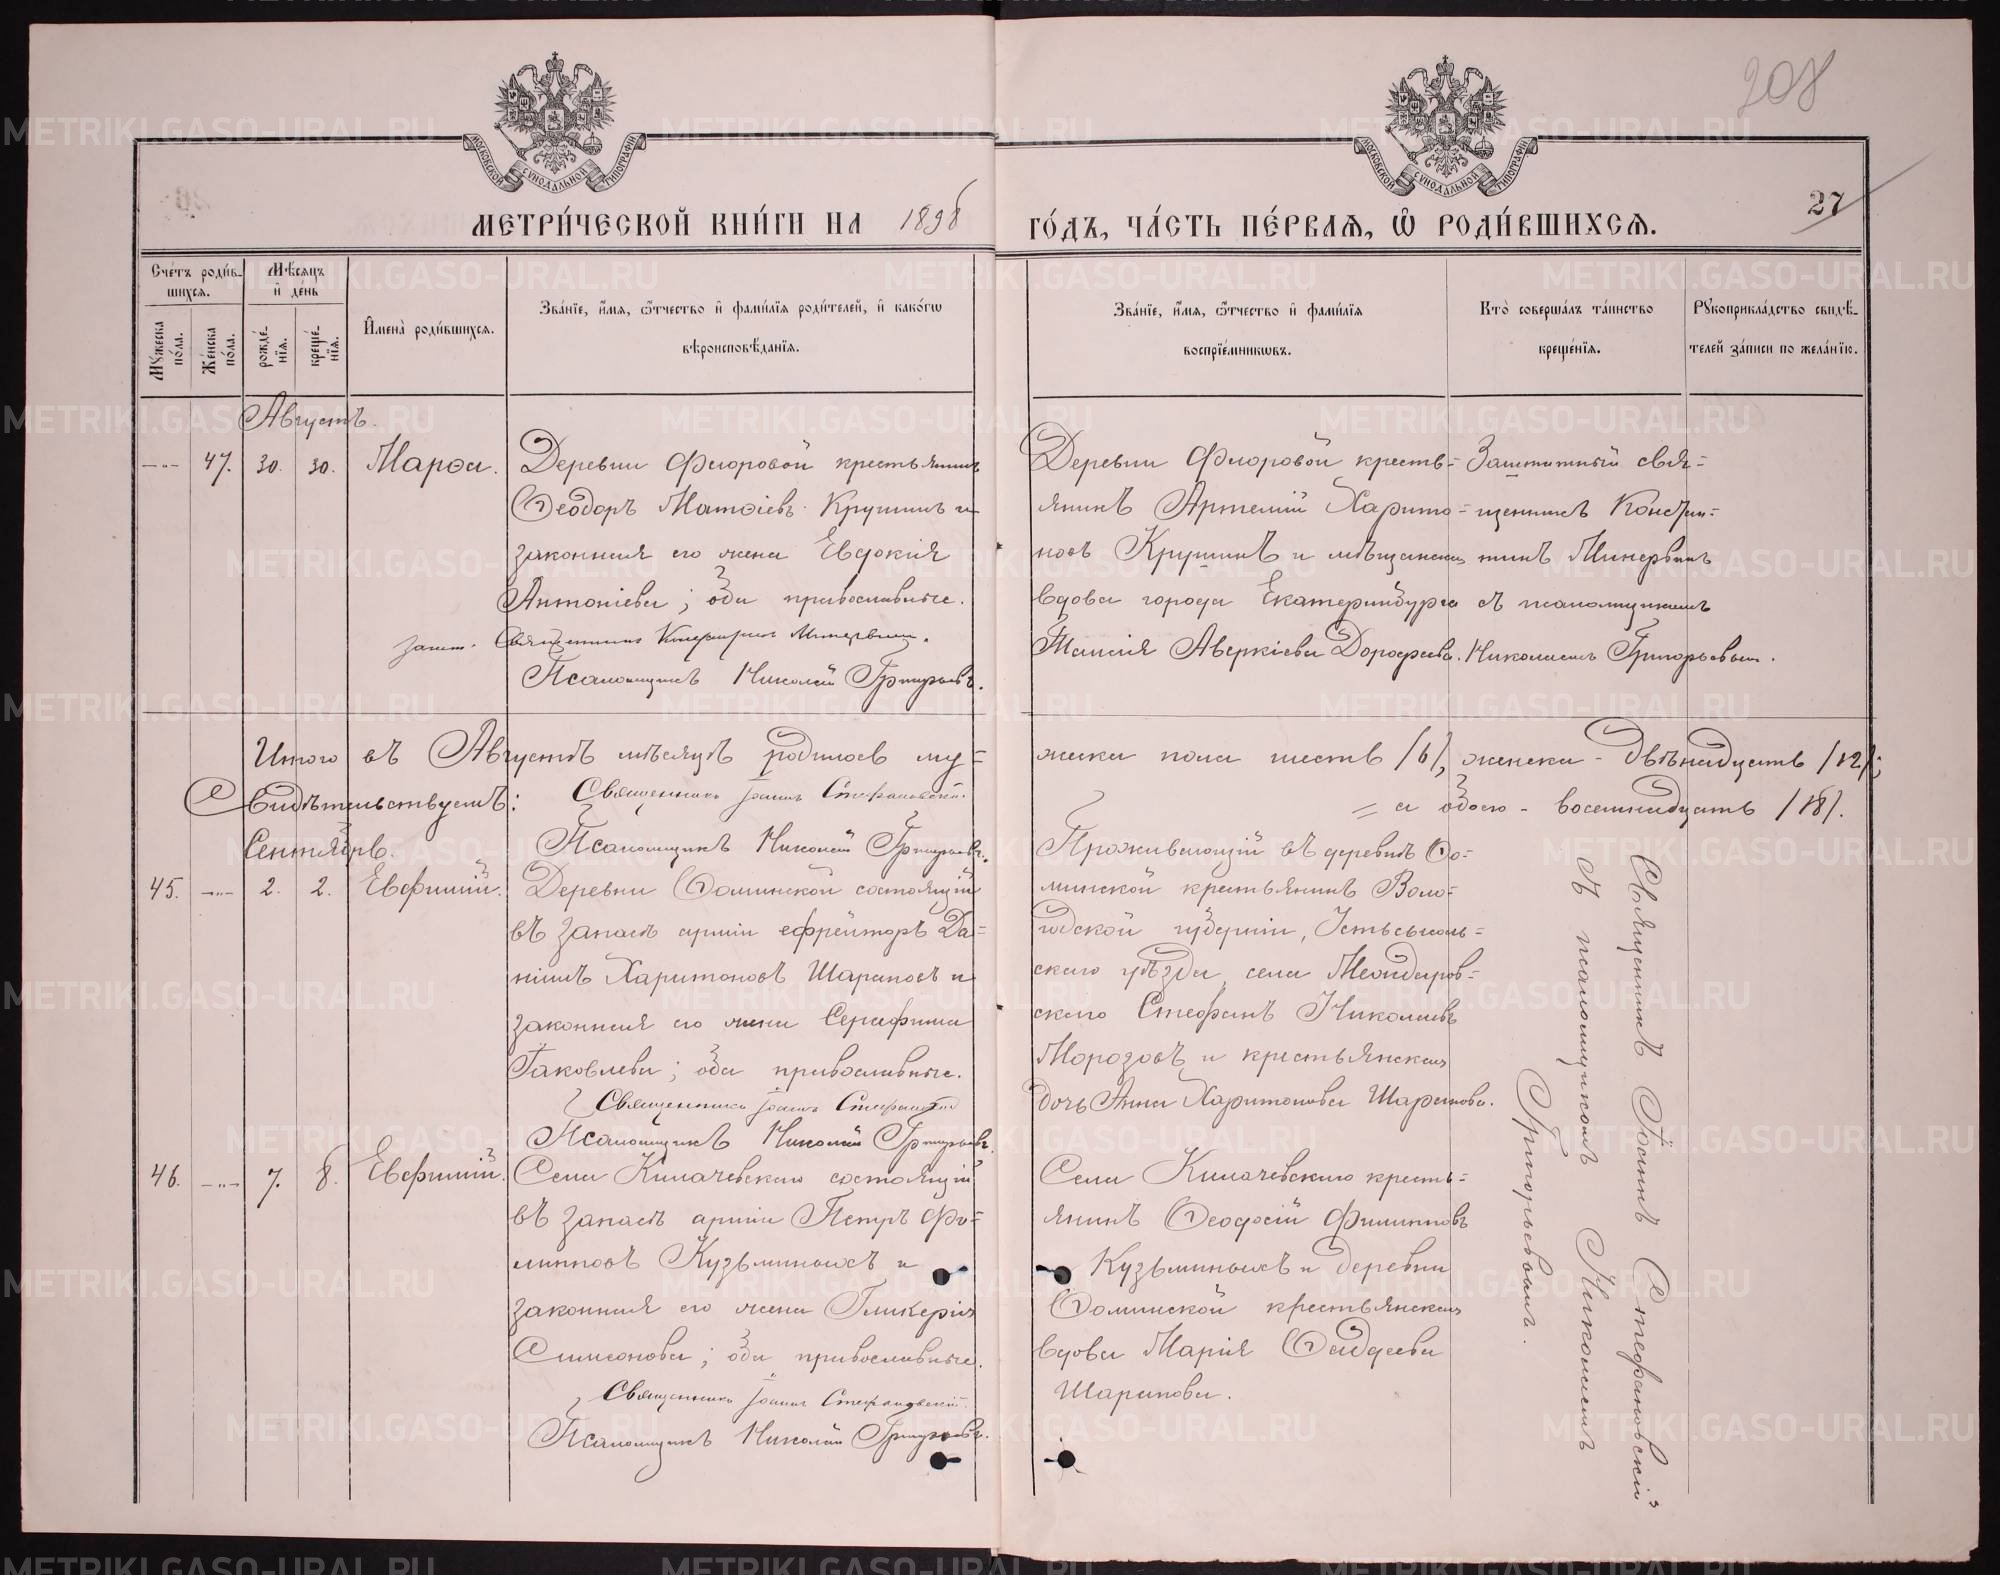 208
27
МОСКОВСКОЙ СѴНОДАЛЬНОЙ ТИПОГРАФІИ
МОСКОВСКОЙ СѴНОДАЛЬНОЙ ТИПОГРАФІИ
МЕТРИ́ЧЕСКОЙ КНИ́ГИ НА 1898 ГО́ДЪ, ЧА́СТЬ ПЕ́РВАѦ, Ѡ҆ РОДИ́ВШИХСѦ.
Сче́тъ роди́в-
шихсѧ.
Мꙋжеска по́ла.
Же́нска по́ла.
Мѣ́сѧцъ
и҆ де́нь
рожде́-
нїѧ.
креще́-
нїѧ.
И҆мена̀ роди́вшихсѧ.
Зва́нїе, и҆́мѧ, ѻ҆́тчество и҆ фами́лїѧ роди́телей, и҆ како́гѡ
вѣроисповѣ́данїѧ.
Зва́нїе, и҆́мѧ, ѻ҆́тчество и҆ фами́лїѧ
воспрїе́мникѡвъ.
Кто̀ соверша́лъ та́инство
креще́нїѧ.
Рꙋкоприкла́дство свидѣ́-
телей за́писи по жела́нїю.
Августъ.
47. 30. 30. Марѳа.
Деревни Фморовой крестьянинъ
Ѳеодоръ Матѳіевъ Крушинъ и
законная его жена Евдокія
Антоніева; оба православные.
Зашт. Священникъ Константинъ Минервинъ.
Псаломщикъ Николай Григорьевъ.
Деревни Фморовой кресть=
янинъ Артемій Харито=
новъ Крушинъ и мѣщанская
вдова города Екатеринбурга
Таисія Аверкіева Дорофеева.
Заштатный свя=
щенникъ Констан=
тинъ Минервинъ
съ псаломщикомъ
Николаемъ Григорьевым.
Итого въ Августѣ мѣсяцѣ родилось му=
жеска пола шесть /6/, женска - двѣнадцать /12/;
= а обоего - восемнадцать /18/.
Свидѣтельствуемъ: Священникъ Іоаннъ Стефановскій.
Псаломщикъ Николай Григорьевъ.
Сентябрь.
45. 2. 2. Евфимій.
Деревни Ѳоминской состоящій
въ запасѣ арміи ефрейторъ Да=
ніилъ Харитоновъ Шараповъ и
законная его жена Серафима
Іаковлева; оба православные.
Священникъ Іоаннъ Стефановскій
Псаломщикъ Николай Григорьевъ.
Проживающій въ деревнѣ Ѳо=
минской крестьянинъ Воло=
годской губерніи, Устьсысоль=
скаго уѣзда, села
скаго Стефанъ Николаевъ
Морозовъ и крестьянская
дочь Анна Харитонова Шарапова.
Священникъ Іоаннъ Стефановскій
съ псаломщикомъ Николаемъ
Григорьевымъ.
46. 7. 8. Евфимій.
Села Килачевскаго состоящій
въ запасѣ арміи Петръ Фи=
липповъ Кузьминыхъ и
законная его жена Гликерія
Симеонова; оба православные.
Священникъ Іоаннъ Стефановскій.
Псаломщикъ Николай Григорьевъ.
Села Килачевскаго кресть=
янинъ Ѳеодосій Филипповъ
Кузьминыхъ и деревни
Ѳоминской крестьянская
вдова Марія Ѳаддеева
Шарапова.
METRIKI.GASO-URAL.RU